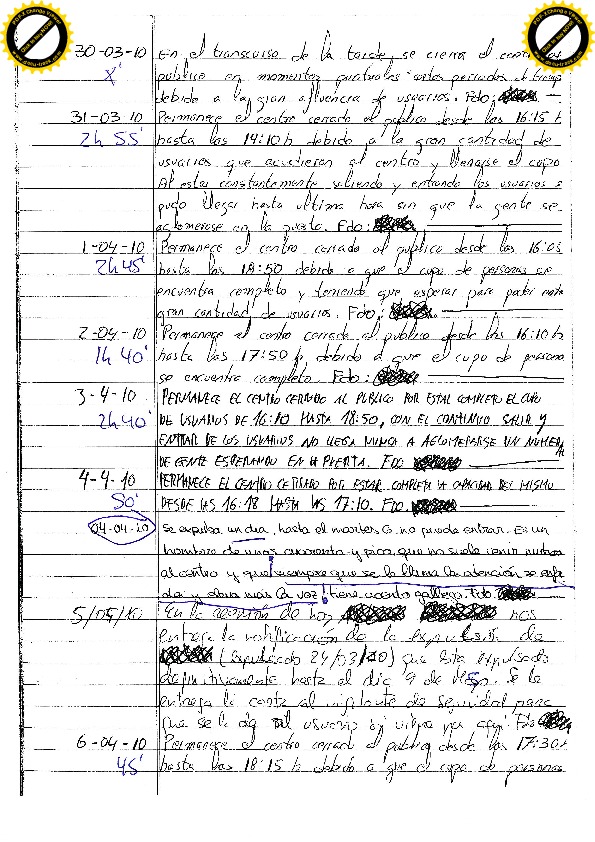 30-03-10 En el transcurso de la tarde, se cierra el centro al
X' publico en momentos puntuales estos periodos de tiempo
debido a la gran afluencia de usuarios. Fdo:
31-03-10 Permanece el centro cerrado al publico desde las 16:15 h
2h 55' hasta las 19:10 h debido a la gran cantidad de
usuarios que acudieron al centro y llenarse el cupo
Al estar constantemente saliendo y entrando los usuarios se
pudo llegar hasta ultima hora sin que la gente se
aglomerase en la puerta. Fdo:
1-04-10 Permanece el centro cerrado al publico desde las 16:05
2h 45' hasta las 18:50 debido a que el cupo de personas se
encuentra completo y teniendo que esperar para poder entrar
gran cantidad de usuarios. Fdo:
2-04-10 Permanece el centro cerrado al publico desde las 16:10 h
1h 40' hasta las 17:50 h, debido a que el cupo de personas
se encuentra completo. Fdo:
3-4-10 PERMANECE EL CENTRO CERRADO AL PUBLICO POR ESTAR COMPLETO EL CUPO
2h 40' DE USUARIOS DE 16:10 HASTA 18:50, CON EL CONTINUO SALIR Y
ENTRAR DE LOS USUARIOS NO LLEGA NUNCA A AGLOMERARSE UN NUMERO
DE GENTE ESPERANDO EN LA PUERTA. FDO
4-4-10 PERMANECE EL CENTRO CERRADO POR ESTAR COMPLETA LA CAPACIDAD DEL MISMO
50' DESDE LAS 16:18 HASTA LAS 17:10. FDO.
04-04-10 Se expulsa un dia, hasta el martes 6 no puede entrar. Es un
hombre de unos cuarenta y pico, que no suele venir nunca
al centro y que siempre que se le llama la atención se enfa
da y eleva más la voz, tiene acento gallego. Fdo:
5/04/10 En la reunion de hoy nos
entrega la notificación de la expulsión de
(expulsado 24/03/10) que esta expulsado
definitivamente hasta el dia 9 de Se le
entrega la carta al vigilante de seguridad para
que se le de al usuario si viene por aqui. Fdo
6-04-10 Permanece el centro cerrado al publico desde las 17:30 h
45' hasta las 18:15 h debido a que el cupo de personas